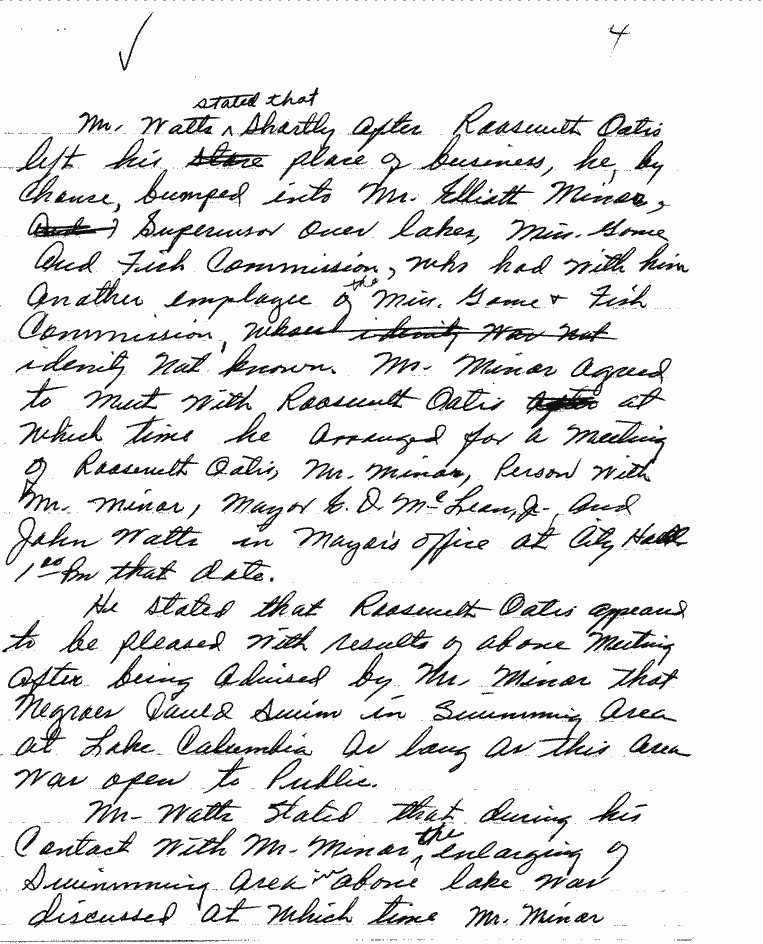 4
stated that
Mr. Watts ^ Shortly after Roosevelt Oatis
left his store place of business, he, by
chance, bumped into Mr. Elliott Minor,
Supervisor over lakes, Miss. Game
And Fish Commission, who had with him
Another employee of the Miss. Game & Fish
Commission, whose idenity was not
idenity not known. Mr. Minor agreed
to meet with Roosevelt Oatis after at
which time he arranged for a meeting
of Roosevelt Oatis, Mr. Minor, Person with
Mr. Minor, Mayor E. D. McLean, Jr., and
John Watts in Mayor's office at City Hall
1:00 Pm that date.
He stated that Roosevelt Oatis appeared
to be pleased with results of above meeting
after being advised by Mr. Minor that
Negroes Could Swim in Swimming Area
at Lake Columbia As long As this area
was open to Public.
Mr. Watts stated that during his
Contact with Mr. Minor, ^ the enlarging of
Swimmming area in above lake was
discussed at which time Mr. Minor